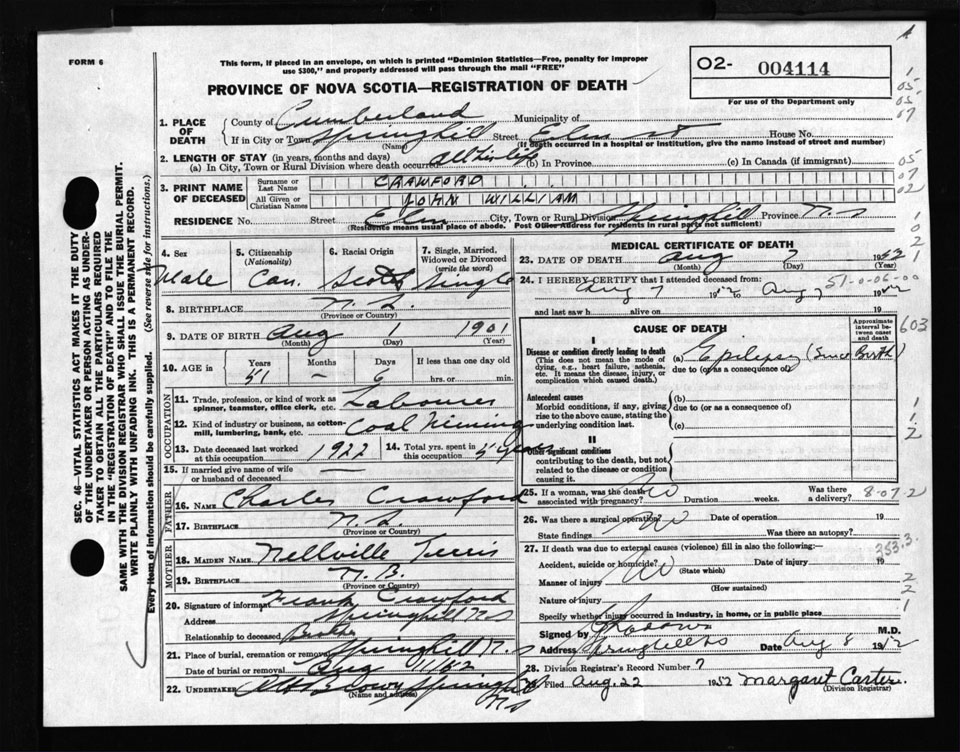 FORM 6
This form, if placed in an envelope, on which is printed "Dominion Statistics—Free, penalty for improper
use $300," and properly addressed will pass through the mail "FREE"
O2- 004114
For use of the Department only
PROVINCE OF NOVA SCOTIA—REGISTRATION OF DEATH
1. PLACE OF DEATH
County of Cumberland Municipality of
If in City or Town Springhill Street Elm St House No.
(Name) (If death occurred in a hospital or institution, give the name instead of street and number)
2. LENGTH OF STAY (in years, months and days)
(a) In City, Town or Rural Division where death occurred All his life (b) In Province (c) In Canada (if immigrant)
3. PRINT NAME OF DECEASED
Surname or Last Name CRAWFORD
All Given or Christian Names JOHN WILLIAM
RESIDENCE No. Street Elm City, Town or Rural Division Springhill Province N.S
(Residence means usual place of abode. Post Office Address for residents in rural parts not sufficient)
4. Sex Male
5. Citizenship (Nationality) Can.
6. Racial Origin Scotch
7. Single, Married, Widowed or Divorced (write the word) Single
8. BIRTHPLACE N.S.
(Province or Country)
9. DATE OF BIRTH Aug 1 1901
(Month) (Day) (Year)
10. AGE in Years Months Days If less than one day old
51 – 6 hrs. or min.
OCCUPATION
11. Trade, profession, or kind of work as spinner, teamster, office clerk, etc. Labourer
12. Kind of industry or business, as cotton-mill, lumbering, bank, etc. Coal Mining
13. Date deceased last worked at this occupation 1922
14. Total yrs. spent in this occupation
15. If married give name of wife or husband of deceased
FATHER
16. Name Charles Crawford
17. Birthplace N.S.
MOTHER
18. Maiden Name Nellville
19. Birthplace N.B.
(Province or Country)
20. Signature of informant Frank Crawford
Address Springhill N S
Relationship to deceased Brother
21. Place of burial, cremation or removal Springhill N.S
Date of burial or removal Aug 11/52
22. Undertaker Brown Springhill
(Name and address) N S
MEDICAL CERTIFICATE OF DEATH
23. DATE OF DEATH Aug 7 1952
(Month) (Day) (Year)
24. I HEREBY CERTIFY that I attended deceased from:
Aug 7 1952 to Aug 7 1952
51-0-06-00
and last saw h alive on 19
CAUSE OF DEATH
Approximate interval between onset and death
603
I
Disease or condition directly leading to death
(This does not mean the mode of dying, e.g., heart failure, asthenia, etc. It means the disease, injury, or complication which caused death.)
(a) Epilepsy (Since Birth)
due to (or as a consequence of)
Antecedent causes
Morbid conditions, if any, giving rise to the above cause, stating the underlying condition last.
(b)
due to (or as a consequence of)
(c)
II
Other significant conditions
contributing to the death, but not related to the disease or condition causing it.
25. If a woman, was the death associated with pregnancy? No Duration weeks. Was there a delivery?
8-07-2
26. Was there a surgical operation? No Date of operation 19
State findings Was there an autopsy?
27. If death was due to external causes (violence) fill in also the following:
353.3
Accident, suicide or homicide? No Date of injury 19
(State which)
Manner of injury
(How sustained)
Nature of injury
Specify whether injury occurred in industry, in home, or in public place
Signed by M.D.
Address Springhill NS Date Aug 8 1952
28. Division Registrar's Record Number 7
29. Filed Aug. 22 1952 Margaret Carter
(Division Registrar)
SEC. 46—VITAL STATISTICS ACT MAKES IT THE DUTY
OF THE UNDERTAKER OR PERSON ACTING AS UNDER-
TAKER TO OBTAIN ALL THE PARTICULARS REQUIRED
IN THE "REGISTRATION OF DEATH" AND TO FILE THE
SAME WITH THE DIVISION REGISTRAR WHO SHALL ISSUE THE BURIAL PERMIT.
WRITE PLAINLY WITH UNFADING INK. THIS IS A PERMANENT RECORD.
Every item of information should be carefully supplied. (See reverse side for instructions.)
1
05
05
07
05
07
02
1
0
2
1
1
1
2
2
2
1